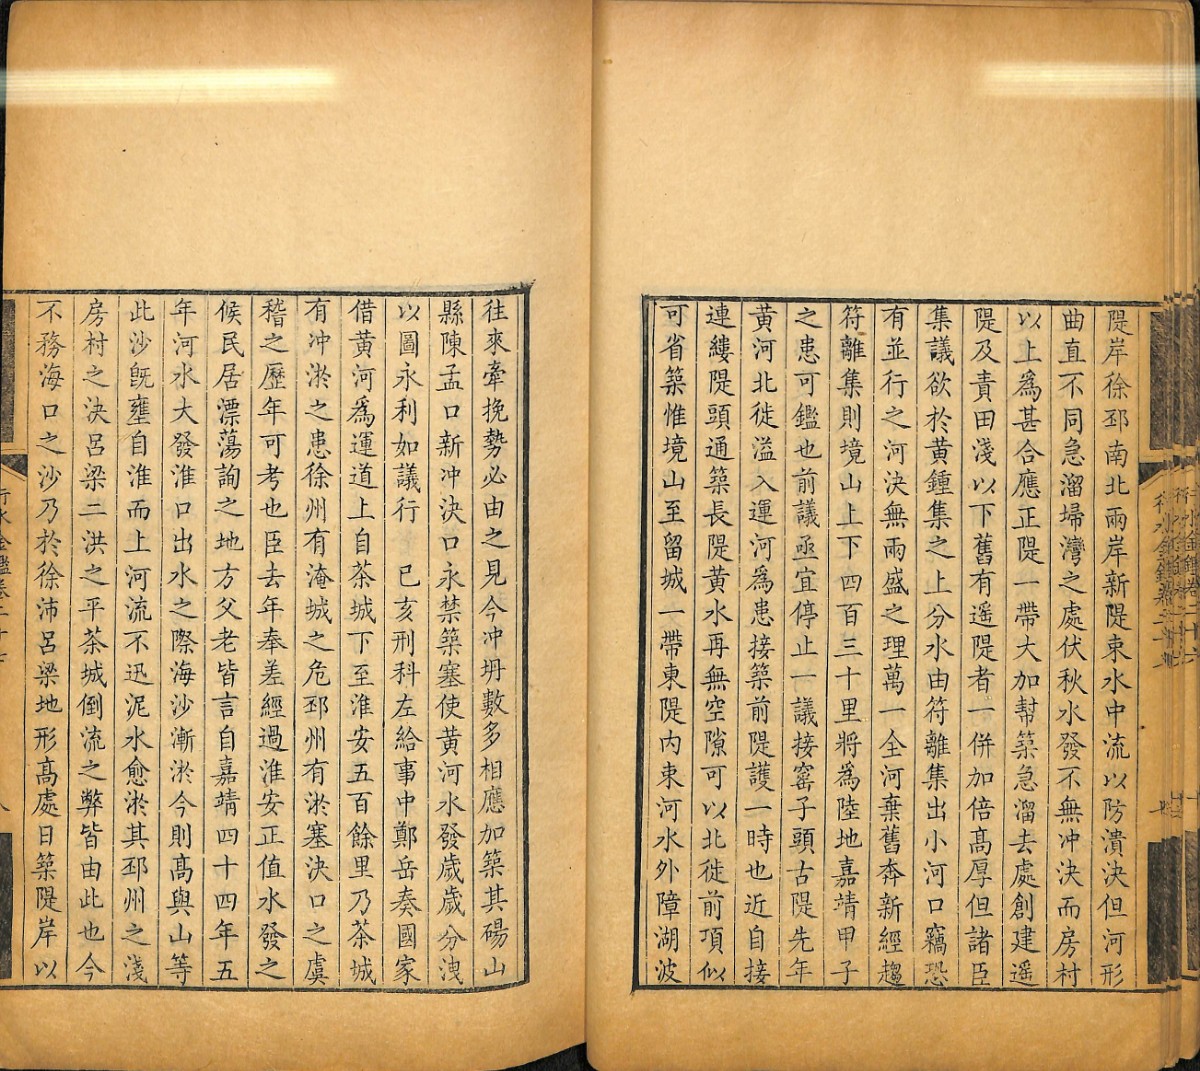 隄岸徐邳南北兩岸新隄束水中流以防潰決但河形
曲直不同急溜埽灣之處伏秋水發不無冲決而房村
以上爲甚合應正隄一帶大加幫築急溜去處創建遥
隄及責田淺以下舊有遥隄者一併加倍高厚但諸臣
集議欲於黃鍾集之上分水由符離集出小河口竊恐
有並行之河決無兩盛之理萬一全河棄舊奔新經趨
符離集則境山上下四百三十里將爲陸地嘉靖甲子
之患可鑑也前議亟宜停止一議接窰子頭古隄先年
黃河北徙溢入運河爲患接築前隄護一時也近自接
連縷隄頭通築長隄黃水再無空隙可以北徙前項似
可省築惟境山至留城一帶東隄内束河水外障湖波
往來牽挽勢必由之見今冲坍數多相應加築其碭山
縣陳孟口新冲決口永禁築塞使黃河水發歲歲分洩
以圖永利如議行　已亥刑科左給事中鄭岳奏國家
借黃河爲運道上自茶城下至淮安五百餘里乃茶城
有冲淤之患徐州有淹城之危邳州有淤塞決口之虞
稽之歷年可考也臣去年奉差經過淮安正值水發之
候民居漂蕩詢之地方父老皆言自嘉靖四十四年五
年河水大發淮口出水之際海沙漸淤今則高與山等
此沙旣壅自淮而上河流不迅泥水愈淤其邳州之淺
房村之決呂梁二洪之平茶城倒流之弊皆由此也今
不務海口之沙乃於徐沛呂梁地形高處日築隄岸以
行水金鑑卷二十七
八